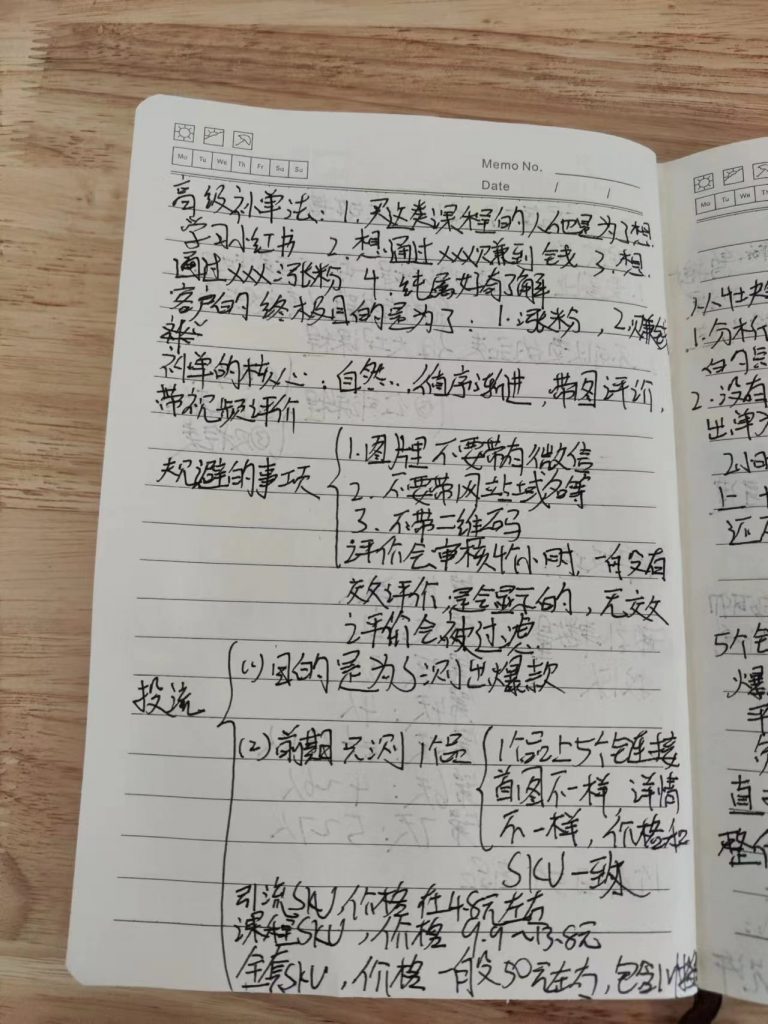 Mo Tu We Th Fr Sa Su
Memo No.
Date / /
高级补单法：1. 买这类课程的人他是为了想
学习小红书 2. 想通过xxx赚到钱 3. 想
通过xxx涨粉 4. 纯属好奇了解
客户的终极目的是为了：1. 涨粉，2. 赚钱
补单的核心：自然..，循序渐进，带图评价，
带视频评价
规避的事项
1. 图片里不要带有微信
2. 不要带网站域名等
3. 不带二维码
评价会审核4个小时，一般没有
效评价，是会显示的，无效
评价会被过滤
投流
(1) 目的是为了测出爆款
(2) 前期只测1个品
1个品上5个链接
首图不一样 详情
不一样，价格和
SKU一致
引流SKU，价格在4.8元左右
课程SKU，价格9.9～13.8元
全套SKU，价格一般50元左右，包含
Mo Tu We Th
1. 分析
2. 没有
出单
5个
爆
平
直
整个